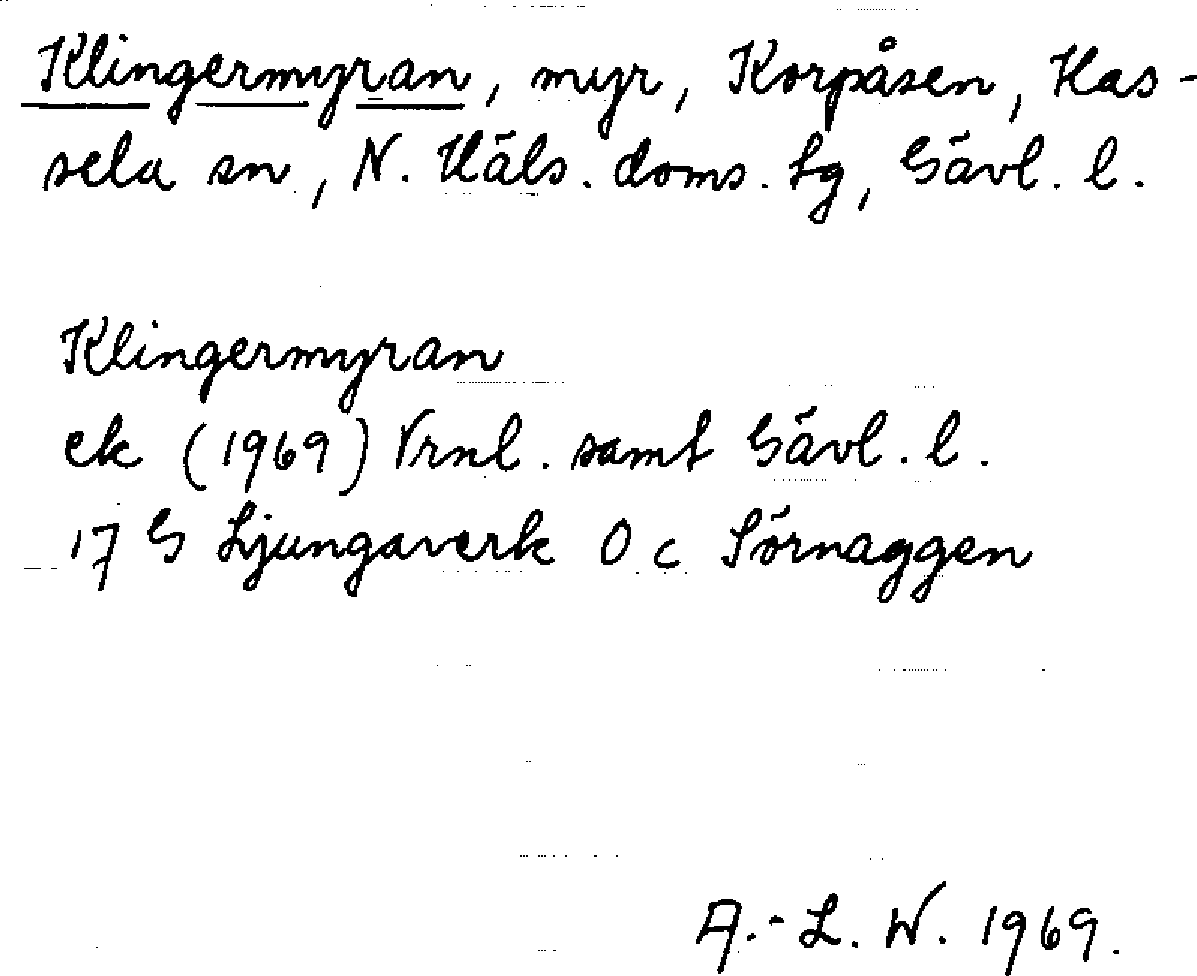 Klingermyran, myr, Korpåsen, Has-
sela sn, N. Häls. doms. tg, Gävl. l.
Klingermyran
ek (1969) Vrnl. samt Gävl. l.
17 G Ljungaverk 0 c Sörnaggen
A.-L. W. 1969.